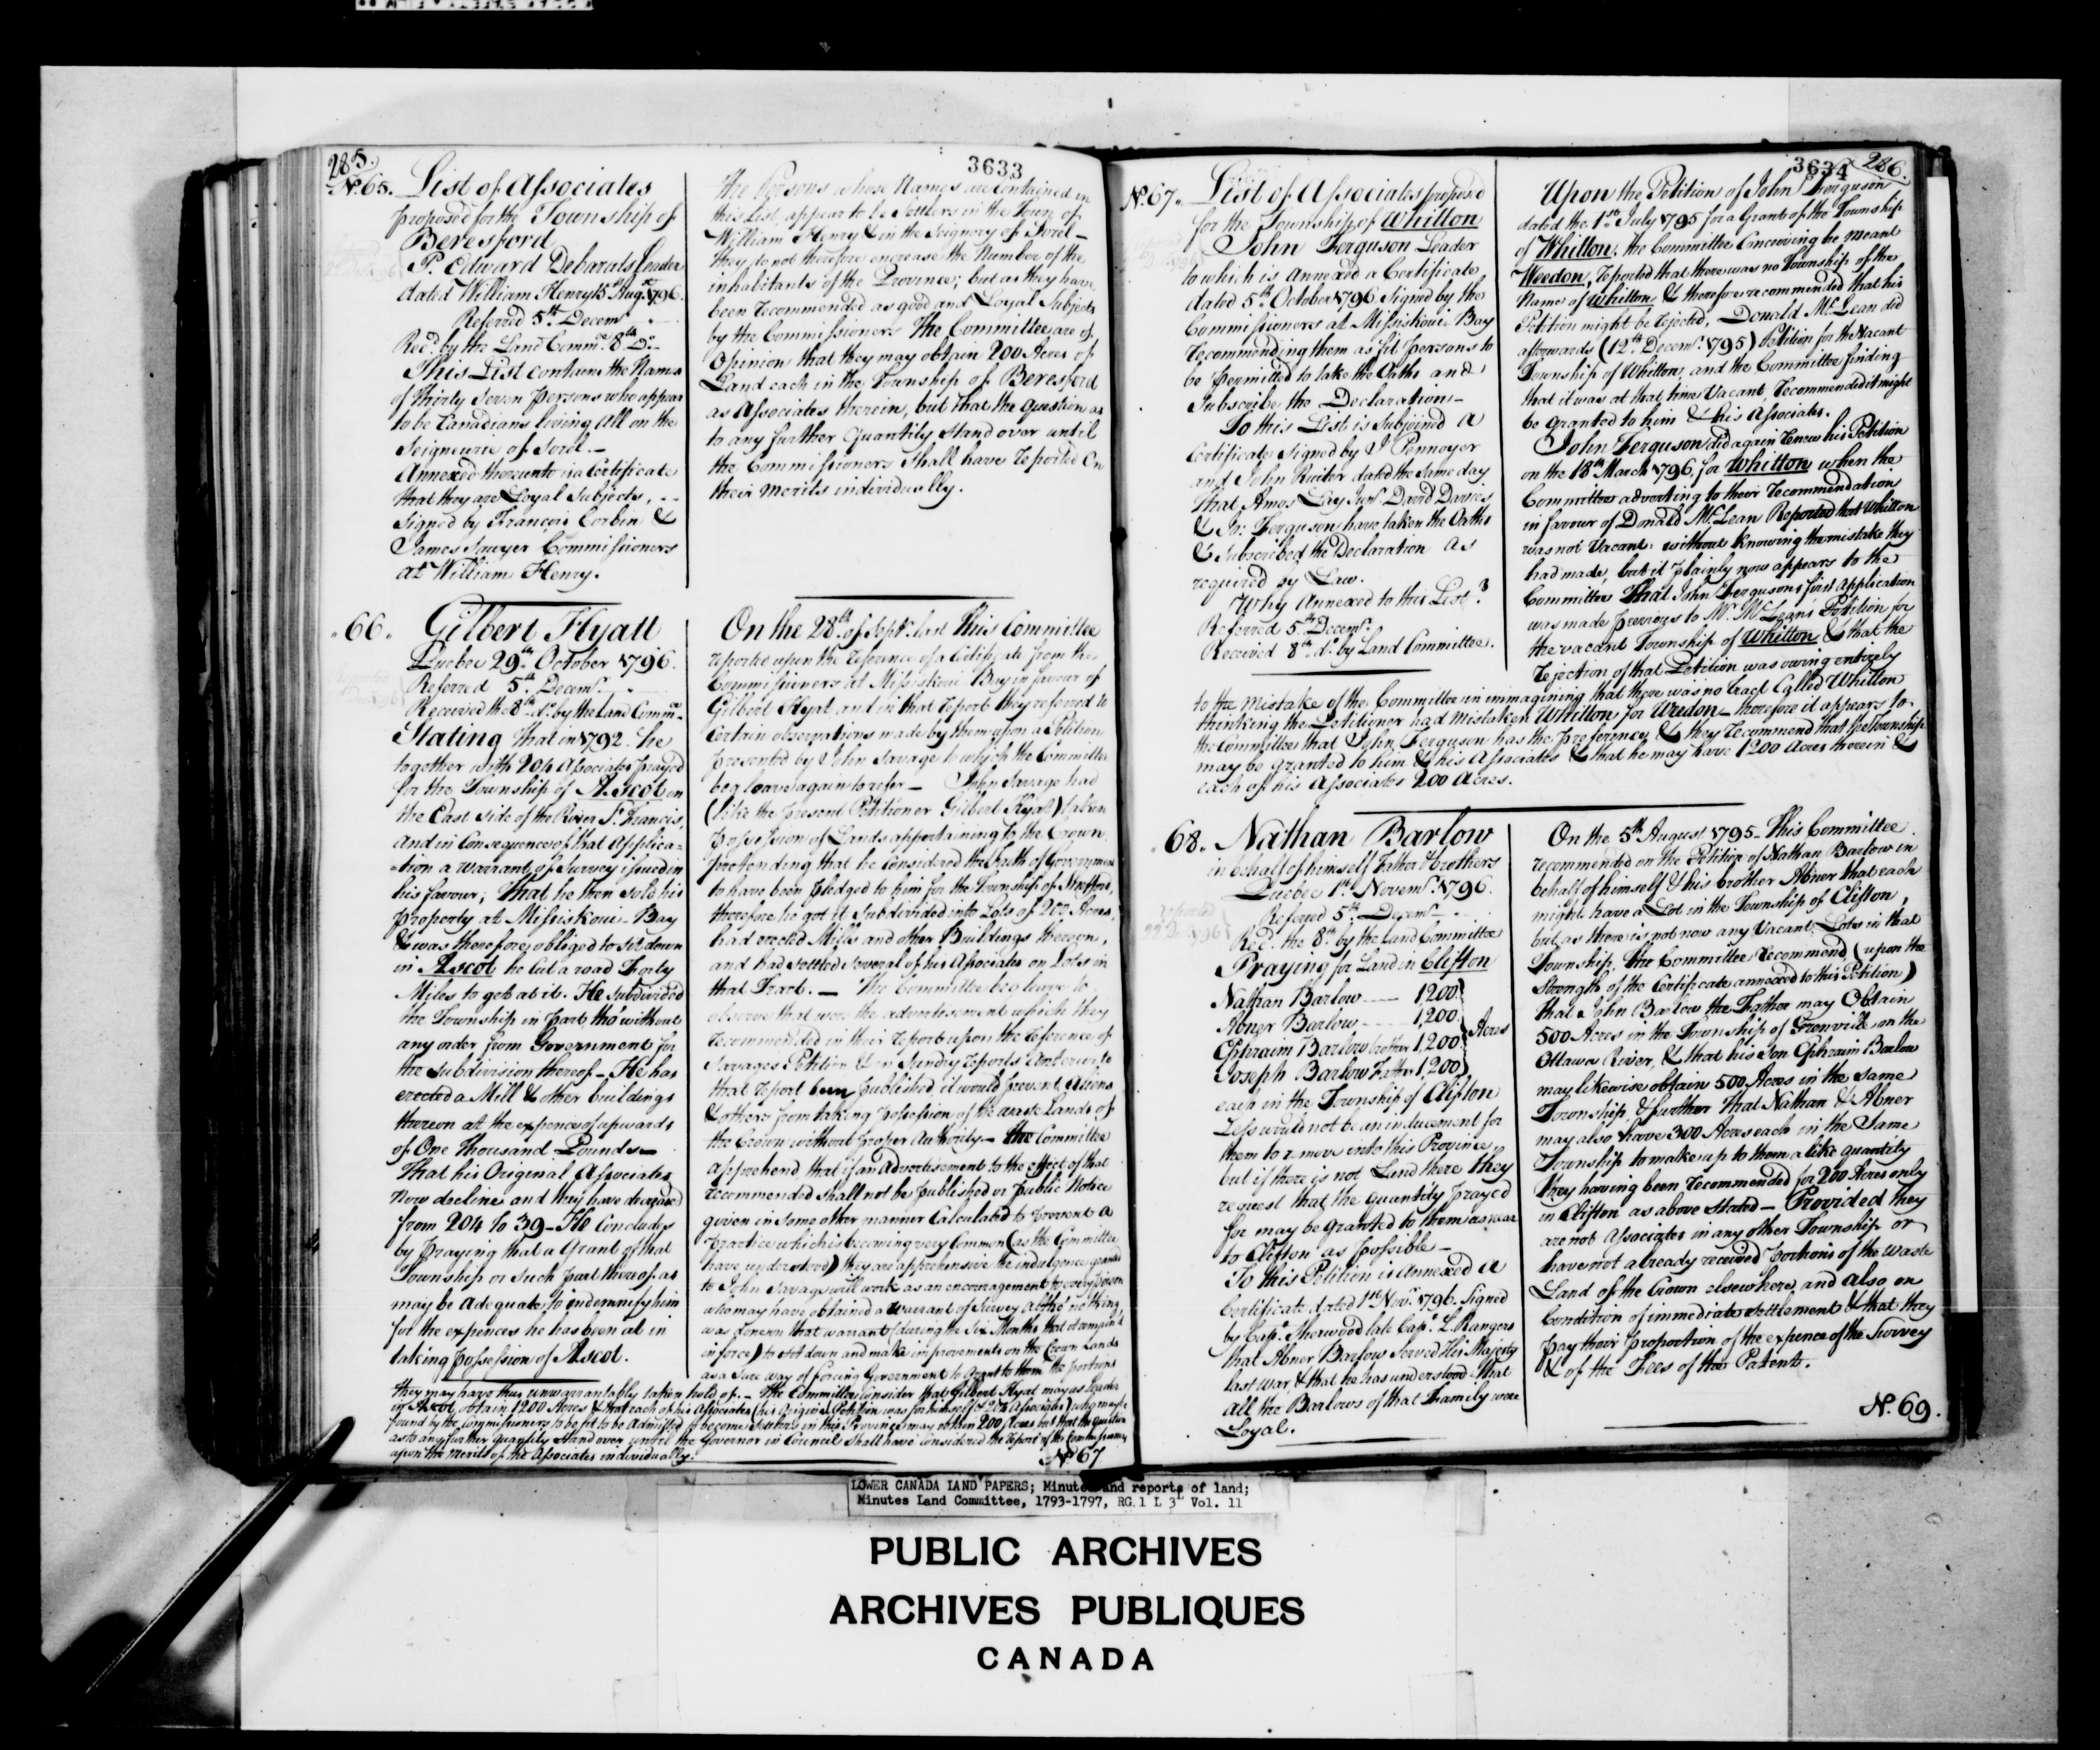 285.
3633
No. 65. List of Associates
proposed for the Township of
Beresford
P. Edward Debarats Leader
dated William Henry 15th Augt. 1796.
Referred 5th Decemr.
Recd. by the Land Commee. 8th Do.
This List contains the Names
of Thirty Seven Persons who appear
to be Canadians living all on the
Seigneurie of Sorel.
Annexed thereunto is a Certificate
that they are Loyal Subjects,
Signed by François Corbin &
James Sawyer Commissioners
at William Henry.
The Persons whose Names are contained in
this List appear to be Settlers in the Town of
William Henry & in the Seignory of Sorel—
They do not therefore encrease the Number of the
inhabitants of the Province; but as they have
been recommended as good and Loyal Subjects
by the Commissioners The Committee are of
Opinion that they may obtain 200 Acres of
Land each in the Township of Beresford
as Associates therein, but that the question as
to any further Quantity Stand over until
the Commissioners Shall have reported on
their merits individually.
66. Gilbert Hyatt
Quebec 29th October 1796.
Referred 5th Decemr.
Received the 8th do. by the Land Commee.
Stating that in 1792 he
together with 204 Associates prayed
for the Township of Ascot on
the East side of the River St. Francis,
and in Consequence of that Applica=
=tion a Warrant of Survey issued in
his favour; That he then sold his
property at Missiskoui Bay
& was therefore obliged to sit down
in Ascot he cut a road Forty
Miles to get at it. He subdivided
the Township in part, tho' without
any order from Government for
the Subdivision thereof— He has
erected a Mill & other buildings
thereon at the expence of upwards
of One Thousand Pounds—
That his Original Associates
now decline and they have decreased
from 204 to 39— He Concludes
by Praying that a Grant of that
Township or Such part thereof as
may be adequate to indemnify him
for the expences he has been at in
taking possession of Ascot.
On the 28th of Septr. last This Committee
reported upon the reference of a Certificate from the
Commissioners at Missiskoui Bay in favour of
Gilbert Hyat and in that report they referred to
Certain observations made by them upon a Petition
presented by John Savage to which the Committee
beg leave again to refer— John Savage had
(like the present Petitioner Gilbert Hyat) taken
Possession of Lands appertaining to the Crown
pretending that he Considered the Faith of Government
to have been Pledged to him for the Township of Shefford,
therefore he got it Subdivided into Lots of 200 Acres,
had erected Mills and other Buildings thereon,
and had settled several of his Associates on Lots in
that Tract. — The Committee beg leave to
observe that were the advertisement which they
recommended in their report upon the reference of
Savages Petition & in Sundry reports anterior to
that report been published, it would prevent Aliens
& others from taking possession of the waste Lands of
the Crown without proper Authority— the Committee
apprehend, that if an Advertisement to the effect of that
recommended shall not be published or Public Notice
given in some other manner Calculated to prevent a
practice which is becoming very Common (as the Committee
have understood) they are apprehensive the indulgence granted
to John Savage will work as an encouragement to every Person
who may have obtained a Warrant of Survey altho' nothing
was done on that warrant (during the Six Months that it remain'd
in force) to set down and make improvements on the Crown Lands
as a Sure way of forcing Government to Grant to them the portions
they may have thus unwarrantably taken hold of.— The Committee consider that Gilbert Hyat may as Leader
in Ascot obtain 1200 Acres & that each of his Associates (his Original Petition was for himself & 204 Associates) who may be
found by the Commissioners to be fit to be admitted to become Settlers in this Province may obtain 200 Acres but that the question
as to any further quantity stand over until the Governor in Council shall have considered the report of the Commissioners
upon the merits of the Associates individually.
No. 67
3634
286.
No. 67. List of Associates proposed
for the Township of Whitton
John Ferguson Leader
to which is annexed a Certificate
dated 5th October 1796 Signed by the
Commissioners at Missiskoui Bay
recommending them as fit persons to
be Permitted to take the Oaths and
Subscribe the Declaration—
To this List is Subjoined a
Certificate Signed by J Pennoyer
and John Ruiter dated the same day
That Amos Lay Junr. David Davies
& Jn. Ferguson have taken the Oaths
& Subscribed the Declaration as
required by Law.
Why Annexed to this List?
Referred 5th Decemr.
Received 8th do. by Land Committee.
Upon the Petition of John Ferguson
dated the 1st July 1795 for a Grant of the Township
of Whitton, the Committee Conceiving he meant
Weedon, reported that there was no Township of the
Name of Whitton & therefore recommended that his
Petition might be rejected, Donald McLean did
afterwards (12th Decemr. 1795) Petition for the Vacant
Township of Whitton, and the Committee finding
that it was at that time Vacant, recommended it might
be granted to him & his Associates.
John Ferguson did again renew his Petition
on the 18th March 1796 for Whitton when the
Committee adverting to their recommendation
in favour of Donald McLean Reported that Whitton
was not Vacant without knowing the mistake they
had made, but it plainly now appears to the
Committee That John Fergusons first application
was made previous to Mr. McLeans Petition for
the vacant Township of Whitton & that the
rejection of that Petition was owing entirely
to the mistake of the Committee in immagining that there was no Tract Called Whitton
thinking the Petitioner had mistaken Whitton for Weedon— therefore it appears to
the Committee that John Ferguson has the preference & they recommend that the Township
may be granted to him & his Associates & that he may have 1200 Acres therein &
each of his Associates 200 Acres.
68. Nathan Barlow
in behalf of himself Father & brothers
Quebec 1st Novemr. 1796.
Referred 5th Decemr.
Recd. the 8th by the Land Committee
Praying for Land in Clifton
Nathan Barlow — 1,200
Abner Barlow — 1,200
Ephraim Barlow brother 1,200
Acres
Joseph Barlow Father 1,200
each in the Township of Clifton
Less would not be an inducement for
them to remove into this Province,
but if there is not Land there they
request that the quantity prayed
for may be granted to them as near
to Clifton as possible—
To this Petition is Annexed a
Certificate dated 1st Novr. 1796. Signed
by Capt. Sherwood late Capt. L. Rangers
that Abner Barlow Served His Majesty
last war, & that he has understood that
all the Barlows of that Family were
Loyal.
reported
22 Decr. 96
On the 5th August 1795— This Committee
recommended on the Petition of Nathan Barlow in
behalf of himself & his brother Abner that each
might have a Lot in the Township of Clifton,
but as there is not now any Vacant Lots in that
Township, the Committee Recommend (upon the
Strength of the Certificate annexed to this Petition)
that John Barlow the Father may Obtain
500 Acres in the Township of Grenville on the
Ottawa River, & that his son Ephraim Barlow
may likewise obtain 500 Acres in the same
Township & further that Nathan & Abner
may also have 300 Acres each in the Same
Township to make up to them a like quantity
they having been recommended for 200 Acres only
in Clifton as above Stated— Provided they
are not Associates in any other Township or
have not already received Portions of the waste
Land of the Crown elsewhere, and also on
Condition of immediate settlement & that they
pay their proportion of the expence of the Survey
& of the Fees of their Patent.
No. 69.
LOWER CANADA LAND PAPERS; Minutes and reports of land;
Minutes Land Committee, 1793-1797, RG 1 L 3L Vol. 11
PUBLIC ARCHIVES
ARCHIVES PUBLIQUES
CANADA